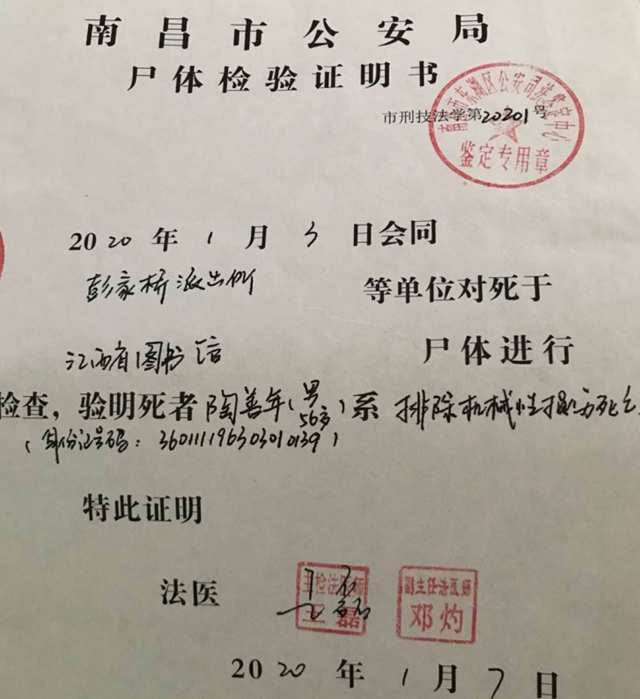 南昌市公安局
尸体检验证明书
市刑技法学第20201号
鉴定专用章
2020年1月3日会同
彭家桥派出所 等单位对死于
江西省图书馆 尸体进行
检查，验明死者陶善年（男 56岁）系 排除机械性损伤死亡
（身份证号码：360111196303010139）
特此证明
法医 主检法医师 王磊 副主任法医师 邓灼
2020年1月7日